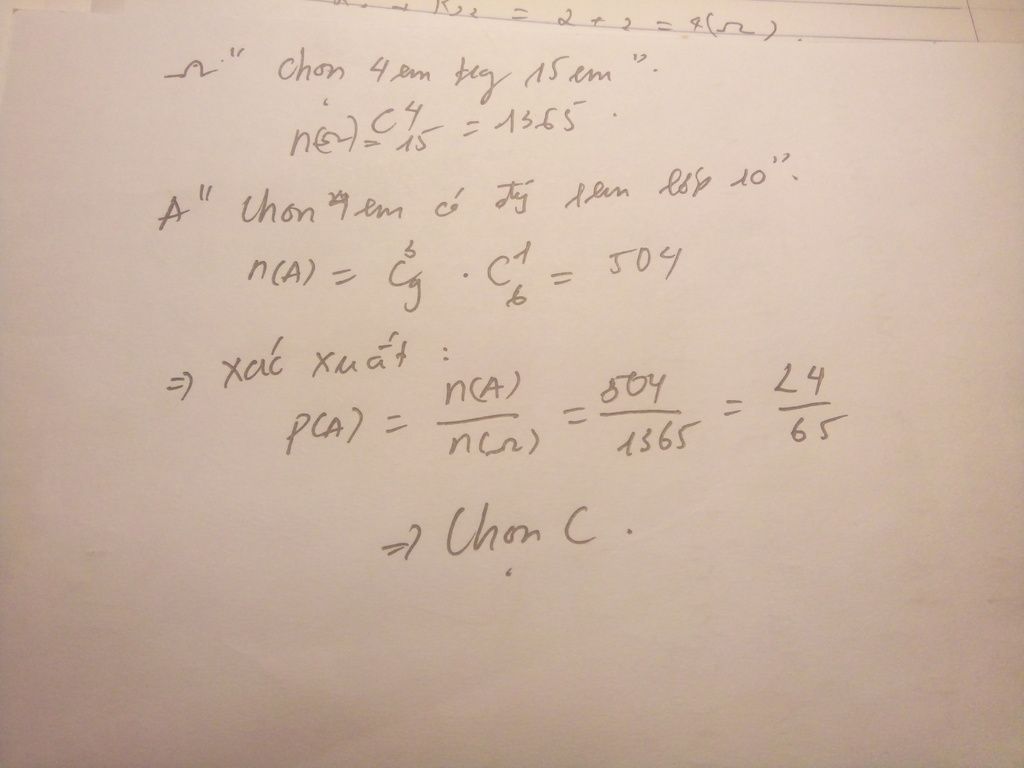 R₂₂ = 2 + 2 = 4(Ω).
Ω " Chọn 4 em trg 15 em ".
n(Ω) = C⁴₁₅ = 1365.
A " Chọn 4 em có đg 1 em lớp 10 ".
n(A) = C³₉ . C¹₆ = 504
=> Xác xuất :
P(A) = n(A) / n(Ω) = 504 / 1365 = 24 / 65
=> Chọn C.